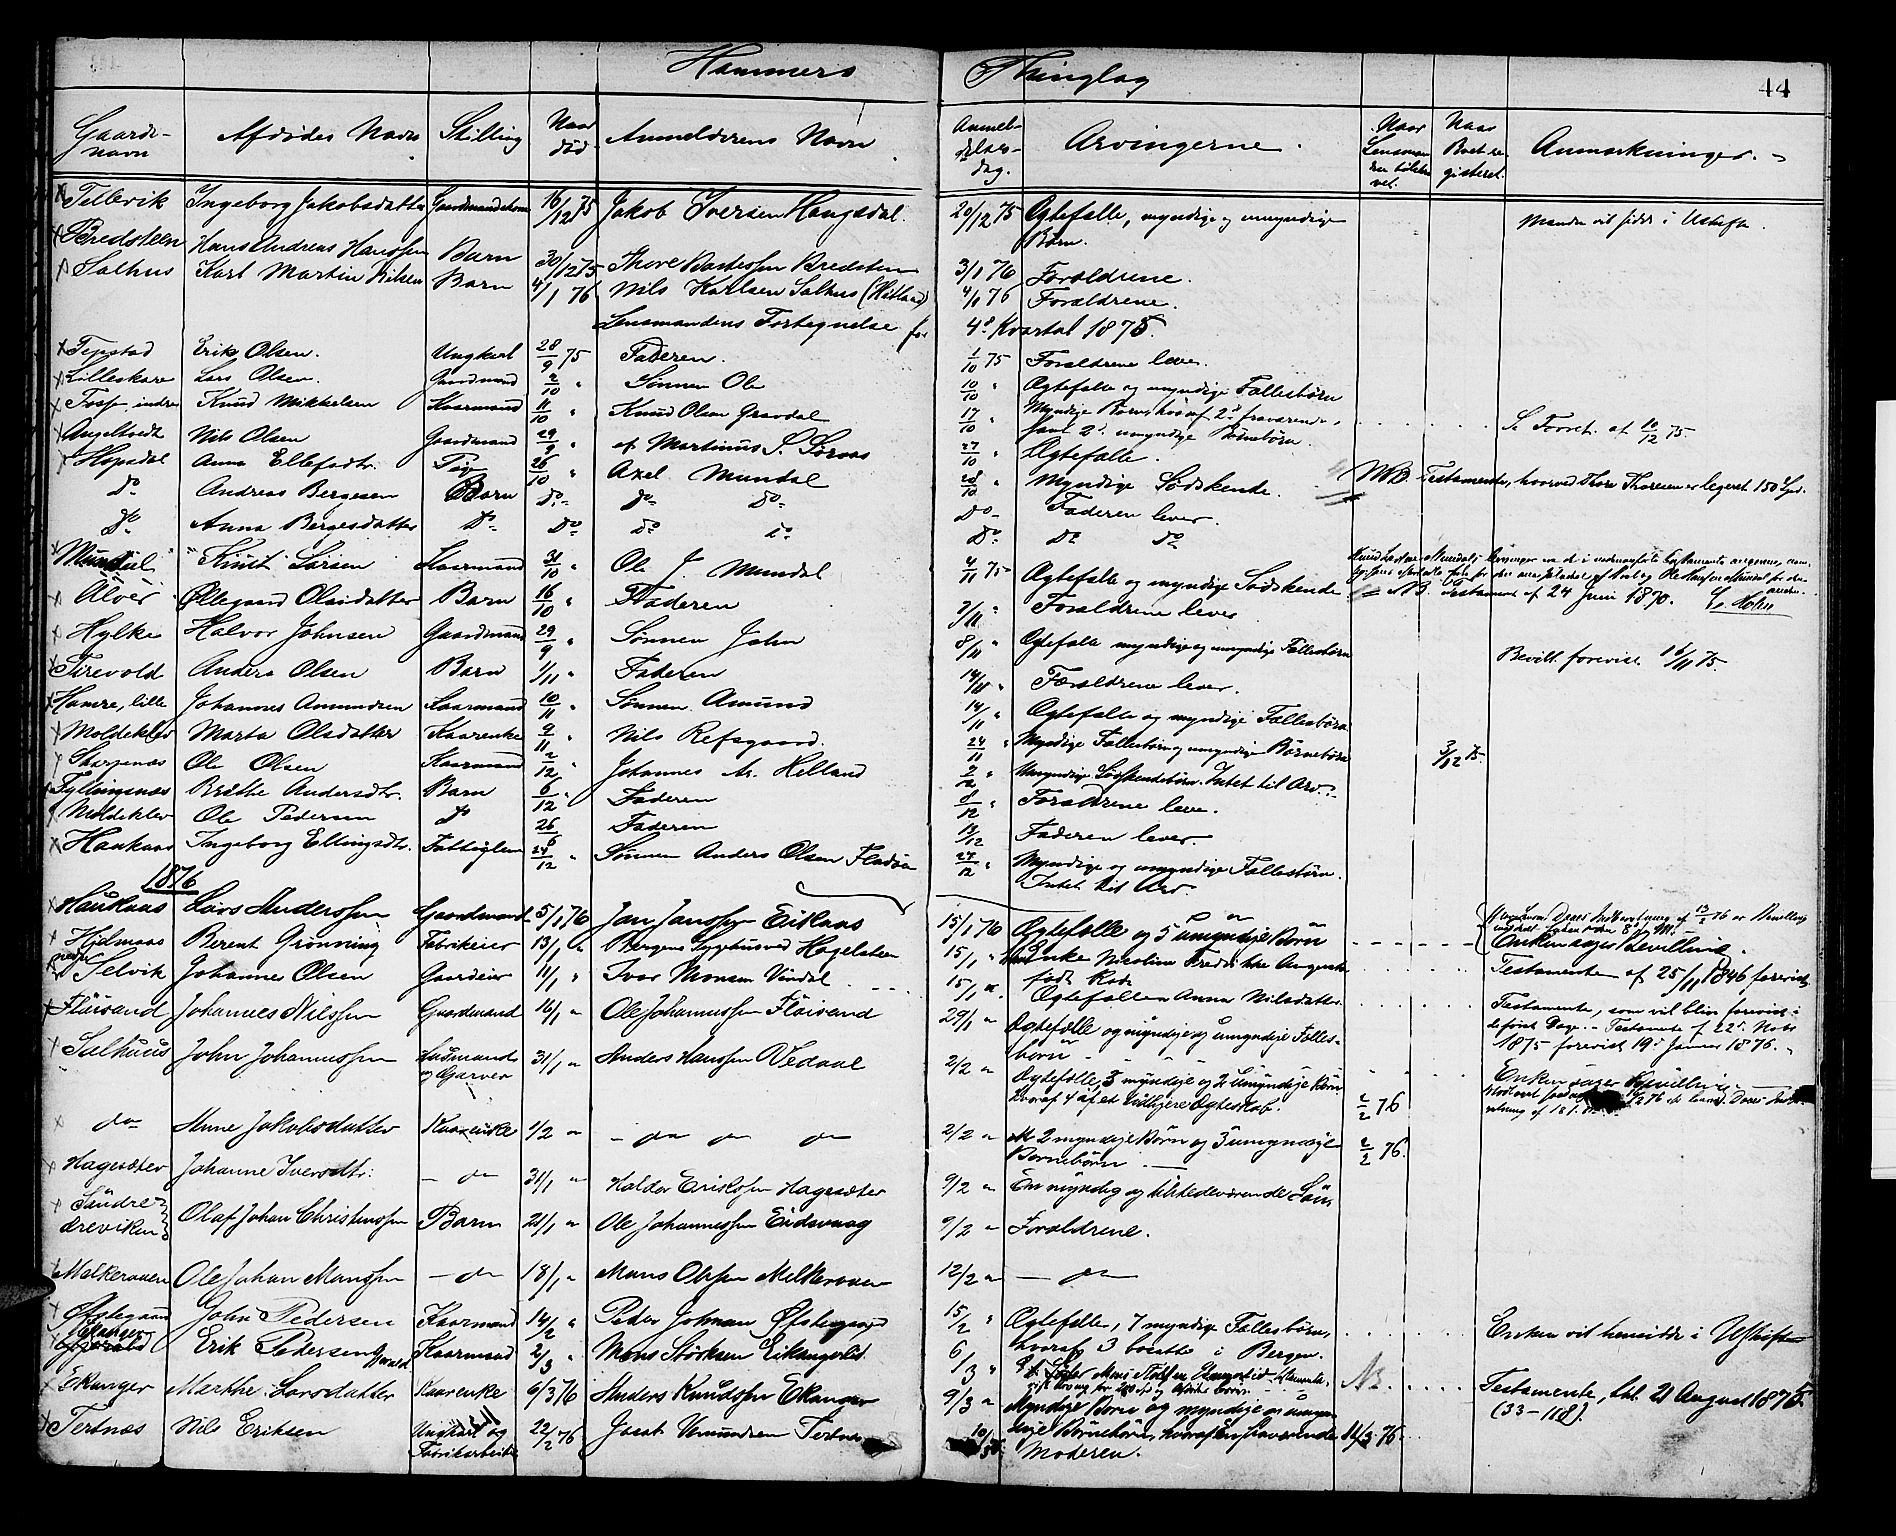 Hammers Thinglag 44
Gaards-navn Afdödes Navn Stilling Naar död. Anmelderens Navn Anmeldelses-dag. Arvingerne. Naar Lensmanden Naar Boet registeret. Anmærkninger.
Tellevik Ingeborg Jakobsdatter Gaardmandskone 16/12 75 Jakob Iversen Haugsdal. 20/12 75 Ægtefælle, myndige og umyndige Börn. Manden vil sidde i Uskifte
Bredsteen Hans Andreas Hanssen Barn 30/12 75 Thore Bredsteen 3/1 76 Forældrene.
Salhus Karl Martin Nilsen Barn 4/1 76 Nils Karlsen Salhus 4/1 76 Forældrene.
Lensmandens Fortegnelse for 4de Kvartal 1875.
Tepstad Erik Olsen. Ungkarl 28/9 75 Faderen. 1/10 75 Forældrene lever
Lilleskare Lars Olsen. Gaardmand 2/10 " Sönnen Ole 10/10 " Ægtefælle og myndige Fællesbörn
Tosse indre Knud Mikkelsen Kaarmand 11/10 " Knud Olsen Gravdal 17/10 " Myndige Börn, hvoraf 2de fraværende, samt 2de umyndige Börnebörn. Se Forret. af 10/12 75.
Angeltvedt Nils Olsen Gaardmand 29/9 " Martinus S. 27/10 " Ægtefælle.
Hopsdal Anna Ellefsdtr. Pige 26/10 " Axel Mundal 28/10 " Myndige Södskende. NB. Testamente, hvorved Thore Thoresen er legeret 150 Spd.
do Andreas Bergesen Barn do do do do Faderen lever.
do Anna Bergesdatter do do do do do do do
Mundal Knut Larsen Kaarmand 31/10 " Ole J. Mundal 4/11 75 Ægtefælle og myndige Södskende NB. Testament af 24 Juni 1870.
Alver Öllegaard Olsdatter Barn 16/10 " Faderen 7/11 " Forældrene lever
Hylke Halvor Johnsen Gaardmand 29/9 " Sönnen John 8/11 " Ægtefælle myndige og umyndige Fællesbörn Bevill. forevist 16/11 75.
Tirevold Anders Olsen Barn 1/11 " Faderen 14/11 " Forældrene lever.
Hamre, lille Johannes Amundsen Kaarmand 10/11 " Sönnen Amund 14/11 " Ægtefælle og myndige Fællesbörn
Moldeklev Marta Olsdatter Kaarenke 2/11 " Nils Refsgaard. 24/11 " Myndige Fællesbörn og umyndige Börnebörn 3/12 75.
Skarpenæs Ole Olsen Kaarmand 2/12 " Johannes Ar. Helland 7/12 " Umyndige Södskendebörn. Intet til Arv.
Fyllingsnæs Brithe Andersdtr. Barn 6/12 " Faderen 8/12 " Forældrene lever.
Moldeklev Ole Pedersen do 26/6 Faderen 13/12 Faderen lever.
Haukaas Ingeborg Ellingsdtr. Fattiglem 24/12 " Sönnen Anders Olsen Fladöen 27/12 " Myndige og umyndige Fællesbörn. Intet til Arv.
1876
Haukaas Lars Anderssen Gaardmand 5/1 76 Jan Janssen Eikaas 15/1 76 Ægtefælle og 5 umyndige Börn Enken söger Bevilling.
Hjelmaas Berent Grönning Fabrikeier 13/1 " Bergens Sygehus ved Hagelsteen 15/1 " Enke Nicoline Fredrikke Augusta född Rode Testamente af 25/11 1846 forevist
Selvik Johannes Olsen Gaardeier 11/1 " Ivar Monsen Vindal 15/1 " Ægtefællen Anna Nilsdatter. Testamente, som vil blive forevist i
Flöisand Johannes Nilssen Gaardmand 16/1 " Ole Johannessen Flöisand 29/1 " Ægtefælle og myndige og umyndige Fællesbörn de först Dage. Testamente af 22de Novb 1875 forevist 19de Januar 1876.
Salhuus John Johannessen Huusmand og Garver 31/1 " Anders Hanssen Vedaae 2/2 " Ægtefælle, 3 myndige og 2 umyndige Börn hvoraf 4 af et tidligere Ægteskab. 2/2 76 Enken söger Bevilling
do Anne Jakobsdatter Kaarenke 1/2 " do do do 2/2 " 2 myndige Börn og 3 umyndige Börnebörn 2/2 76.
Hagesæter Johanne Iversdtr. do 31/1 " Haldor Erikssen Hagesæter 9/2 " En myndig og tilstedeværende Sön,
Söndre dreviken Olaf Johan Christenssen Barn 21/1 " Ole Johannessen Eidsvaag 9/2 " Forældrene.
Melkeraaen Ole Johan Monssen do 18/1 " Mons Olssen Melkeraaen 12/2 " do
Öfstegaard John Pedersen Kaarmand 14/2 " Peder Johnsen Öfstegaard 15/2 " Ægtefælle, 7 myndige Fællesbörn, hvoraf 3 bosatte i Bergen. Enken vil hensidde i Uskifte
Erik Pedersen Kaarmand 2/3 " Mons Störksen Eikangerli. 6/3 "
Ekanger Marthe Larsdatter Kaarenke 6/3 76 Anders Knudssen Ekanger 9/3 " Myndige Börn og myndige og umyndige Börnebörn, hvoraf En fraværende 11/3 76. Testamente, dat. 21 August 1875 (33-118).
Tertnæs Nils Eriksen Ungkarl og Fabrikarbeider 22/2 76 Tertnæs 10/3 Moderen.